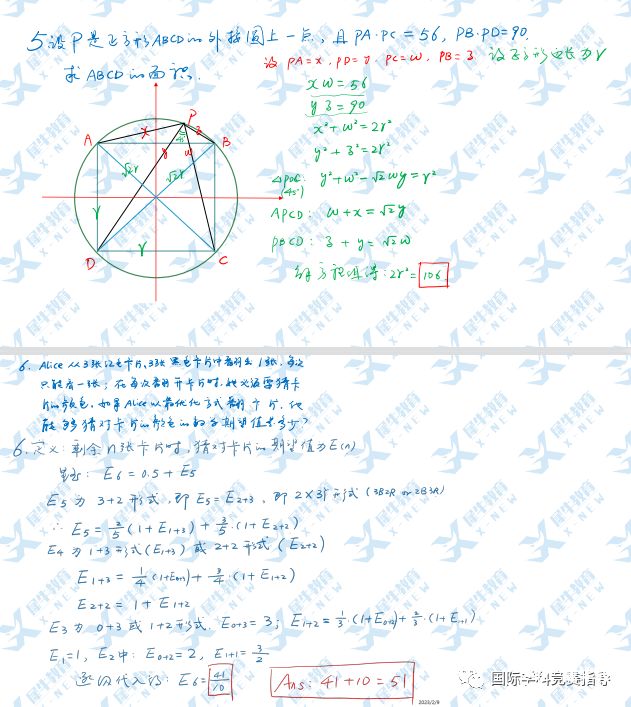 5 设 P 是正方形ABCD的外接圆上一点, 且 PA·PC = 56, PB·PD=90.
求 ABCD 的面积.
设 PA=x, PD=y, PC=w, PB=z 设正方形边长为r
xw = 56
yz = 90
x²+w²=2r²
y²+z²=2r²
y²+w²-√2wy=r²
(45°)
APCD: w+x=√2y
PBCD: z+y=√2w
解方程组得: 2r²= 106
P
A
x
z
B
y
w
√2r
√2r
r
r
D
C
6. Alice 从3张红色卡片、3张黑色卡片中翻到 1张, 每次
只能看一张; 在每次翻开卡片时, 她必须要猜卡
片的颜色. 如果Alice以最优化方式翻 片, 他
能够猜对卡片的颜色的 期望值是多少?
6. 定义: 剩余n张卡片时, 猜对卡片的期望值为E(n)
: E6 = 0.5 + E5
E5 为 3+2形式, 即 E5=E2+3, 即 2×3形式 (3B2R or 2B3R)
∴ E5 = 3/5 (1+E1+3) + 2/5·(1+E2+2)
E4 为 1+3形式(E1+3) 或 2+2形式 (E2+2)
E1+3 = 1/4 (1+E0+3) + 3/4·(1+E1+2)
E2+2 = 1+E1+2
E3 为 0+3 或 1+2形式. E0+3=3; E1+2=1/3·(1+E0+2)+2/3·(1+E1+1)
E1=1, E2中: E0+2=2, E1+1=3/2
逐一代入得: E6= 41/10
Ans: 41+10=51
2023/2/9
国际学科竞赛指导
犀牛教育
X-NEW